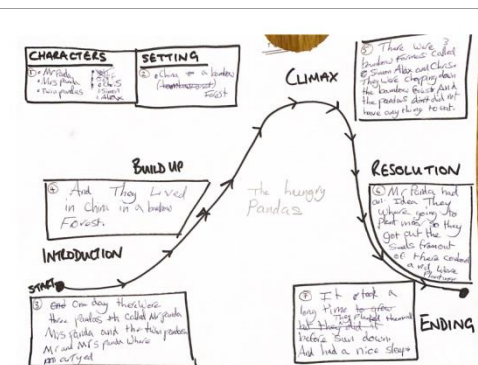 CHARACTERS
① • Mr Panda
• Mrs panda
• Two pandas
SETTING
② • China in a bamboo
Forest
CLIMAX
⑤ There were
bamboo farmers called
Simon Alex and Chris.
They were chopping down
the bamboo forest And
the pandas did not
have any thing to eat.
BUILD UP
④ And They Lived
in China in a bamboo
Forest.
The hungry
Pandas
RESOLUTION
⑥ Mr Panda had
an Idea They
where going to
plant more So they
got out the
seeds
of there
and were
INTRODUCTION
START
③ One day there were
three pandas called Mr panda
Mrs panda and the two pandas
Mr and Mrs panda where
⑦ It took a
long time
They planted them
but they did it
before sun down
And had a nice sleep
ENDING